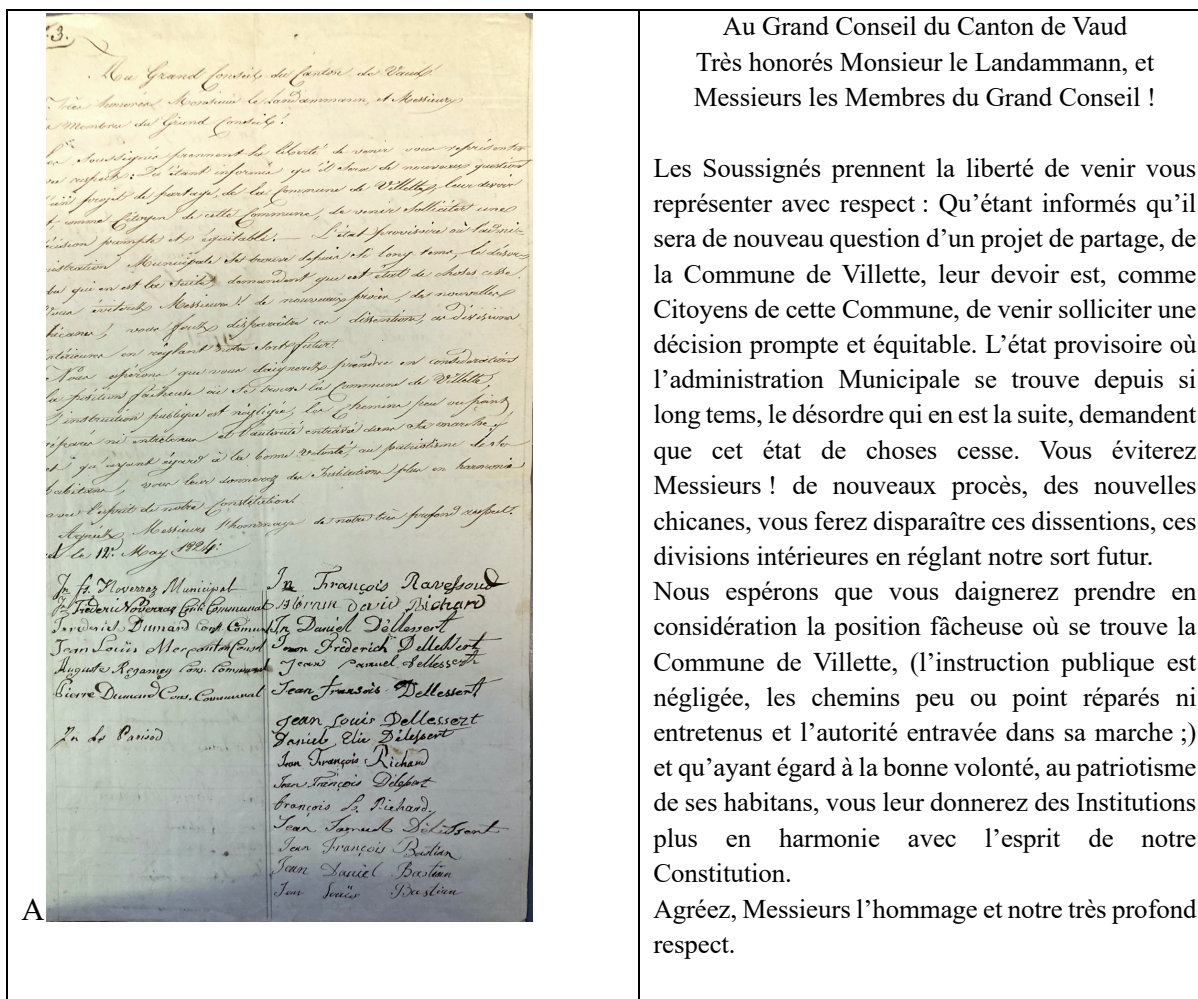 3.
Au Grand Conseil du Canton de Vaud
Très honorés, Monsieur le Landammann, et Messieurs
Membres du Grand Conseil !
Les Soussignés prennent la liberté de venir vous représenter
avec respect : Qu'étant informés qu'il sera de nouveau question
d'un projet de partage, de la Commune de Villette, leur devoir
est, comme Citoyens de cette Commune, de venir solliciter une
décision prompte et équitable. — L'état provisoire où l'admi-
nistration Municipale se trouve depuis si long tems, le désor-
dre qui en est la suite, demandent que cet état de choses cesse.
Vous éviterez Messieurs ! de nouveaux procès, des nouvelles
chicanes, vous ferez disparaître ces dissentions, ces divisions
intérieures en réglant notre sort futur.
Nous espérons que vous daignerez prendre en considération
la position fâcheuse où se trouve la Commune de Villette,
l'instruction publique est négligée, les chemins peu ou point
réparés ni entretenus et l'autorité entravée dans sa marche ;
et qu'ayant égard à la bonne volonté, au patriotisme de ses
habitans, vous leur donnerez des Institutions plus en harmonie
avec l'esprit de notre Constitution.
Agréez, Messieurs l'hommage de notre très profond respect.
le 12e May 1824.
Jn fs. Noverraz Municipal
Jn Frédéric Noverraz Cons Communal
Frederich Dumard Cons Comun
Jean Louis Mercanton Cons
Auguste Regamey Cons. Communal
Pierre Dumard Cons. Communal
Jn Ls Parisod
Jn François Ravessoud
David Richard
Jn Daniel Dèllessert
Jean Fréderich Dellessert
Jean Samuel Dellessert
Jean fransois Dellessert
Jean Louis Dellessert
Daniel Elie Délessert
Jean François Richard
Jean François Délessert
françois L. Richard.
Jean Samuel Déllessert
Jean François Bastian
Jean Daniel Bastian
Jean Louïs Bastian
A
Au Grand Conseil du Canton de Vaud
Très honorés Monsieur le Landammann, et
Messieurs les Membres du Grand Conseil !
Les Soussignés prennent la liberté de venir vous
représenter avec respect : Qu'étant informés qu'il
sera de nouveau question d'un projet de partage, de
la Commune de Villette, leur devoir est, comme
Citoyens de cette Commune, de venir solliciter une
décision prompte et équitable. L'état provisoire où
l'administration Municipale se trouve depuis si
long tems, le désordre qui en est la suite, demandent
que cet état de choses cesse. Vous éviterez
Messieurs ! de nouveaux procès, des nouvelles
chicanes, vous ferez disparaître ces dissentions, ces
divisions intérieures en réglant notre sort futur.
Nous espérons que vous daignerez prendre en
considération la position fâcheuse où se trouve la
Commune de Villette, (l'instruction publique est
négligée, les chemins peu ou point réparés ni
entretenus et l'autorité entravée dans sa marche ;)
et qu'ayant égard à la bonne volonté, au patriotisme
de ses habitans, vous leur donnerez des Institutions
plus en harmonie avec l'esprit de notre
Constitution.
Agréez, Messieurs l'hommage et notre très profond
respect.